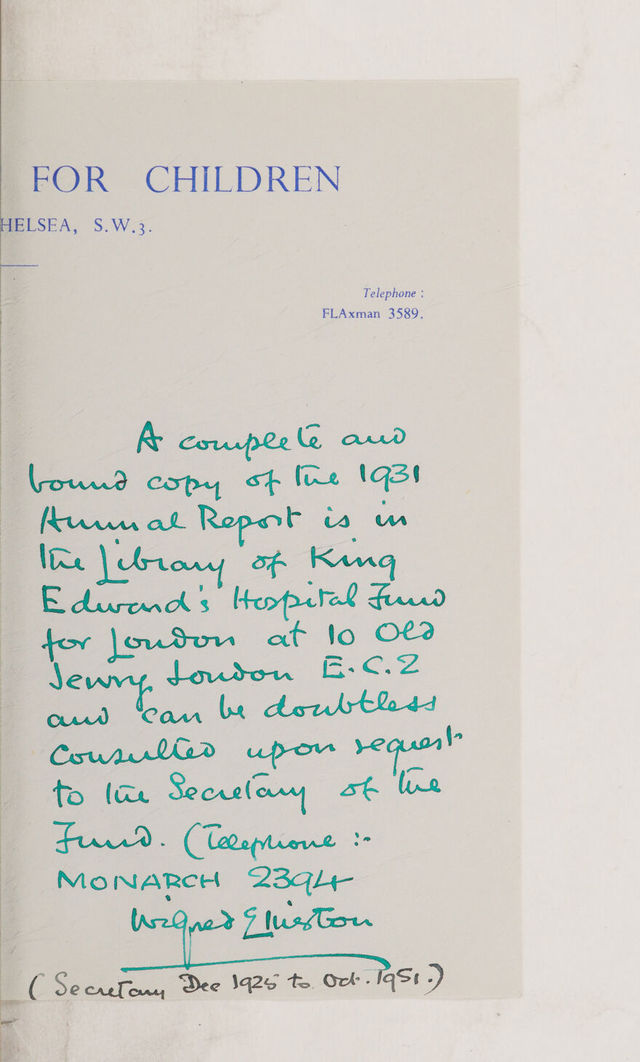 FOR CHILDREN
HELSEA, S.W.3.
Telephone :
FLAxman 3589.
A complete and
bound copy of the 1931
Annual Report is in
the Library of King
Edward's Hospital Fund
for London at 10 Old
Jewry London E.C.2
and can be doubtless
consulted upon request
to the Secretary of the
Fund. (Telephone :-
MONARCH 2394
Wilfred
(Secretary Dec 1925 to Oct. 1951.)